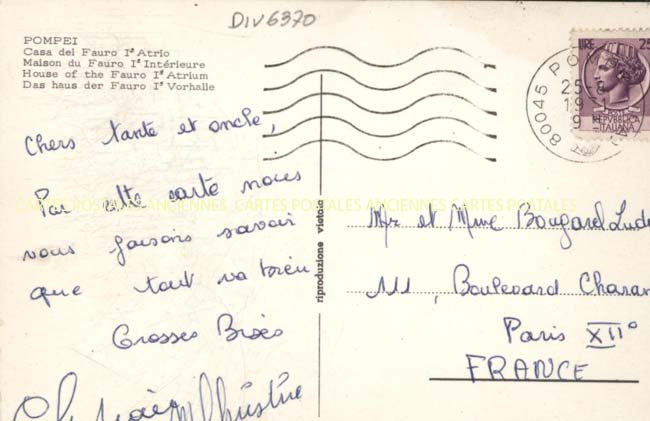 DIV6370
POMPEI
Casa del Fauro Iª Atrio
Maison du Fauro Iª Intérieure
House of the Fauro Iª Atrium
Das haus der Fauro Iª Vorhalle
Chers tante et oncle,
Par cette carte nous
vous faisons savoir
que tout va bien
Grosses Bises
Christine
riproduzione vietata
LIRE 25
REPVBBLICA
ITALIANA
80045 PO
25-8
19
9
CARTES POSTALES ANCIENNES CARTES POSTALES ANCIENNES CARTES POSTALES
Mr et Mme Bougard
111, Boulevard Charan
Paris XIIº
FRANCE